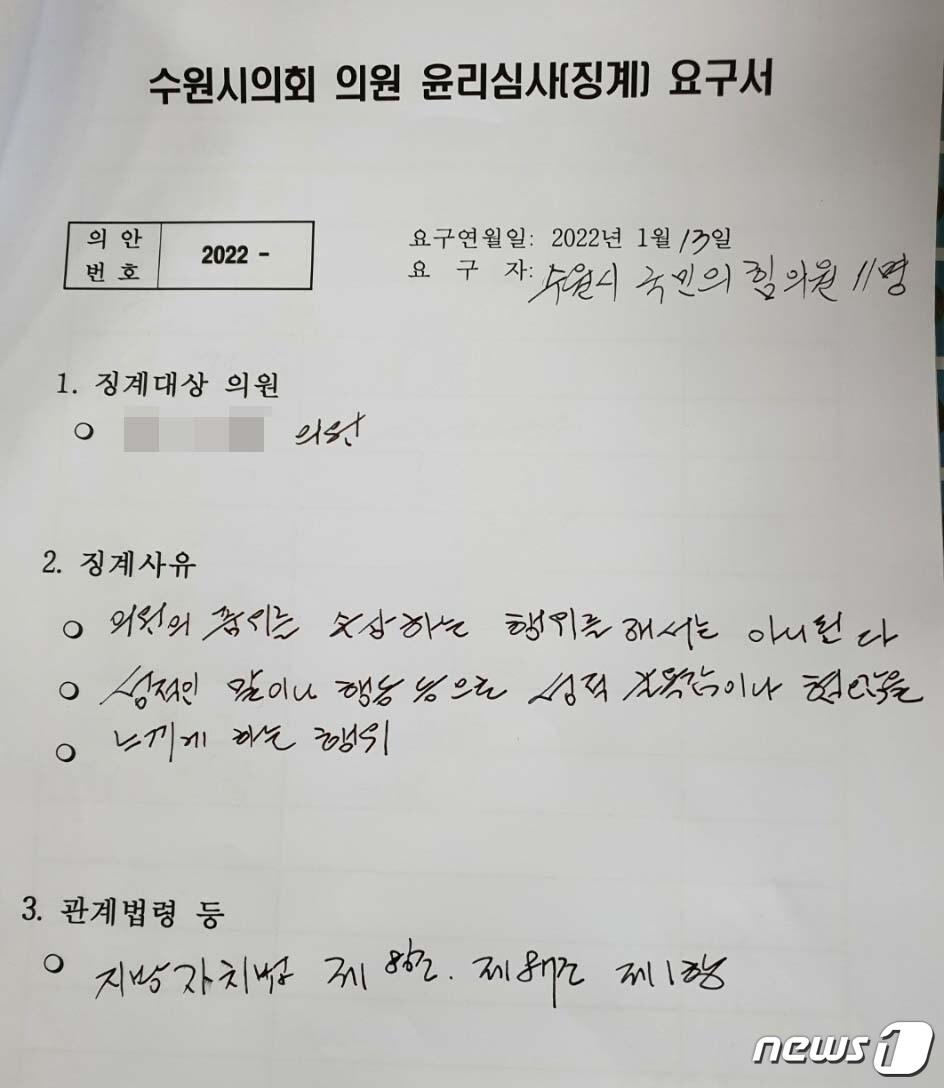 수원시의회 의원 윤리심사(징계) 요구서
의 안
번 호
2022 -
요구연월일: 2022년 1월 13일
요 구 자: 수원시 국민의힘 의원 11명
1. 징계대상 의원
○ 의원
2. 징계사유
○ 의원의 품위를 손상하는 행위를 해서는 아니된다
○ 성적인 말이나 행동 등으로 성적 굴욕감이나 혐오감을
○ 느끼게 하는 행위
3. 관계법령 등
○ 지방자치법 제 제 제1항
news1